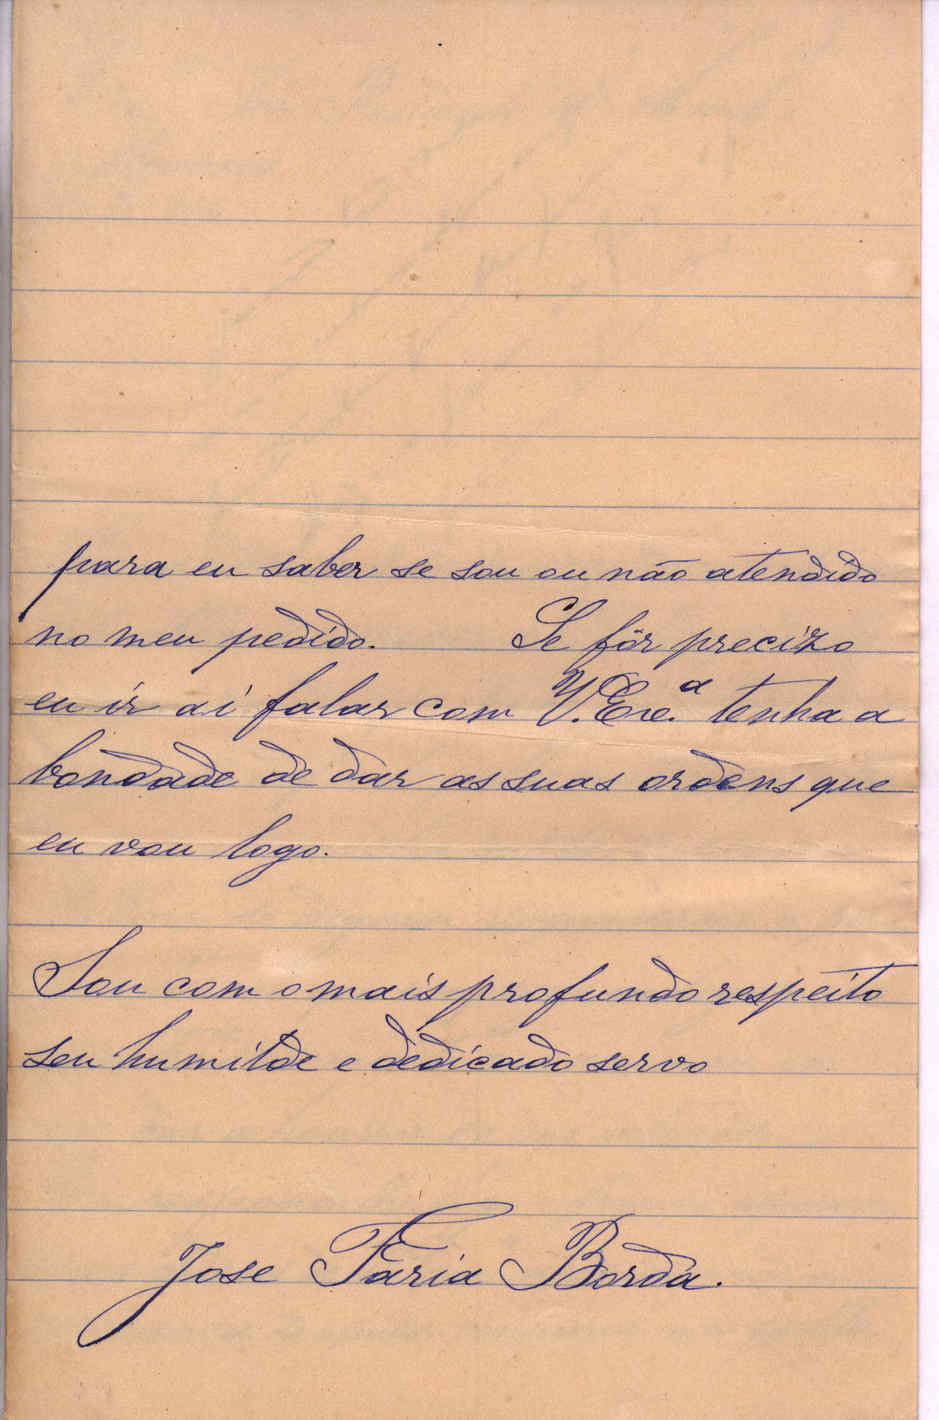 para eu saber se sou ou não atendido
no meu pedido. Se fôr precizo
eu ir aí falar com V. Exe.ª tenha a
bondade de dar as suas ordens que
eu vou logo.
Sou com o mais profundo respeito
seu humilde e dedicado servo
Jose Faria Borda.